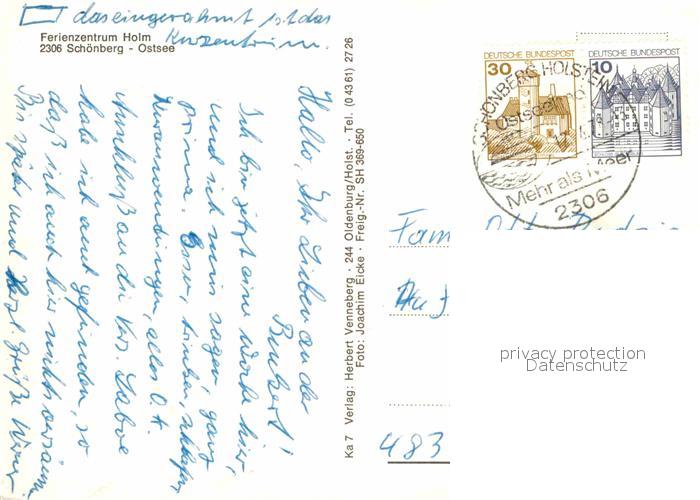 das eingerahmt ist das
Kurzentrum.
Ferienzentrum Holm
2306 Schönberg - Ostsee
Hallo, Ihr Lieben an de
Ich bin jetzt eine Woche hier,
und ich muß sagen, ganz
prima. Essen, trinken, schlafen
Kuranwendungen, alles O.K.
Anschluß an die Kurs. Habe
habe ich auch gefunden, so
daß ich auch hier nichts versäume.
Bis später und Herzl. Grüße
Ka 7 Verlag: Herbert Venneberg · 244 Oldenburg/Holst. · Tel. (0 43 61) 27 26
Foto: Joachim Eicke · Freig.-Nr. SH 369-650
DEUTSCHE BUNDESPOST
30
DEUTSCHE BUNDESPOST
10
SCHÖNBERG HOLSTEIN
Ostsee
Mehr als Meer
2306
Fam
483
privacy protection
Datenschutz